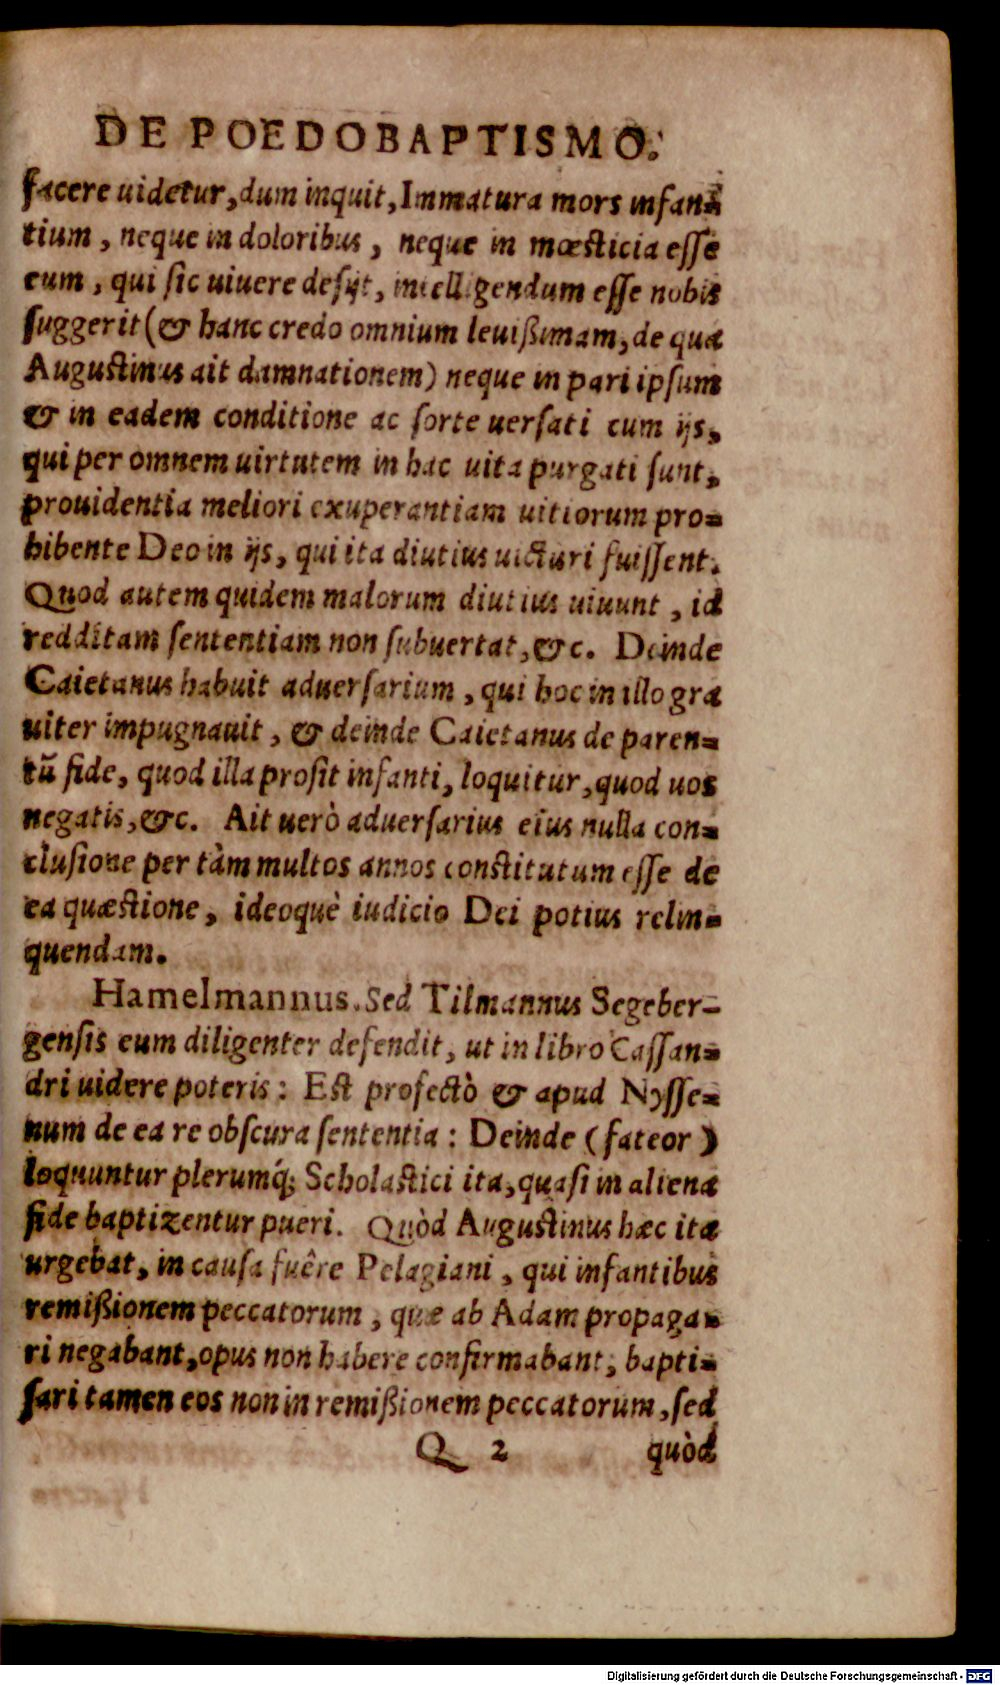 DE POEDOBAPTISMO.
facere uidetur, dum inquit, Immatura mors infan=
tium, neque in doloribus, neque in mœsticia esse
eum, qui sic uiuere desijt, intelligendum esse nobis
suggerit (& hanc credo omnium leuißimam, de qua
Augustinus ait damnationem) neque in pari ipsum
& in eadem conditione ac sorte uersati cum ijs,
qui per omnem uirtutem in hac uita purgati sunt,
prouidentia meliori exuperantiam uitiorum pro=
hibente Deo in ijs, qui ita diutius uicturi fuissent.
Quod autem quidem malorum diutius uiuunt, id
redditam sententiam non subuertat, &c. Deinde
Caietanus habuit aduersarium, qui hoc in illo gra
uiter impugnauit, & deinde Caietanus de paren=
tũ fide, quod illa prosit infanti, loquitur, quod uos
negatis, &c. Ait uerò aduersarius eius nulla con=
clusione per tàm multos annos constitutum esse de
ea quæstione, ideoquè iudicio Dei potius relin=
quendam.
Hamelmannus. Sed Tilmannus Segeber=
gensis eum diligenter defendit, ut in libro Cassan=
dri uidere poteris: Est profectò & apud Nysse=
num de ea re obscura sententia: Deinde (fateor)
loquuntur plerumq́; Scholastici ita, quasi in aliena
fide baptizentur pueri. Quòd Augustinus hæc ita
urgebat, in causa fuêre Pelagiani, qui infantibus
remißionem peccatorum, quæ ab Adam propaga=
ri negabant, opus non habere confirmabant, bapti=
sari tamen eos non in remißionem peccatorum, sed
Q 2 quòd
Digitalisierung gefördert durch die Deutsche Forschungsgemeinschaft - DFG